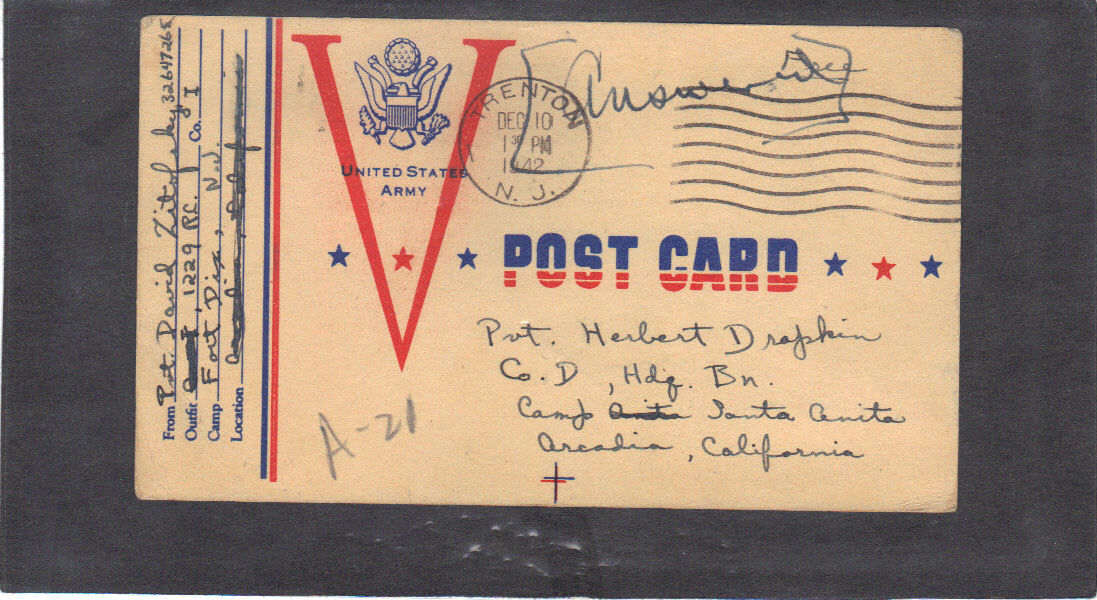 From Pvt. David 32647265
Outfit I, 1229 R.C. Co. I
Camp Fort Dix, N.J.
Location
UNITED STATES
ARMY
TRENTON
DEC 10
1 30 PM
1942
N. J.
Free
Answered
POST CARD
Pvt. Herbert Dropkin
Co. D, Hdq. Bn.
Camp Santa Anita
Arcadia, California
A-21